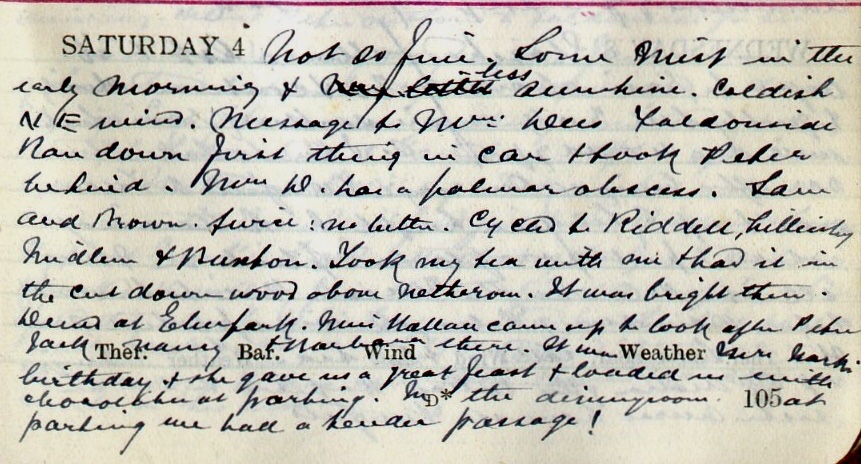 SATURDAY 4 Not so fine. Some mist in the
early morning & very little less sunshine. Coldish
N E wind. Message to Mrs. Dees Faldonside
Ran down first thing in car & took Peter
behind. Mrs D. has a palmar abscess. Saw
and Brown. twice: no better. Cycled to Riddell, Lilliesleaf
Midlem & Buxton. Took my tea with me & had it in
the cut down wood above Netherom. It was bright then.
Dined at Ellerpark. Miss Hallam came up to look after Peter
Jack Nancy & Barbara there. It was Mrs
Thef. Baf. Wind Weather
birthday & she gave us a great feast & loaded us with
chocolates at parting. In the diningroom at
D* 105
parting we had a tender passage!